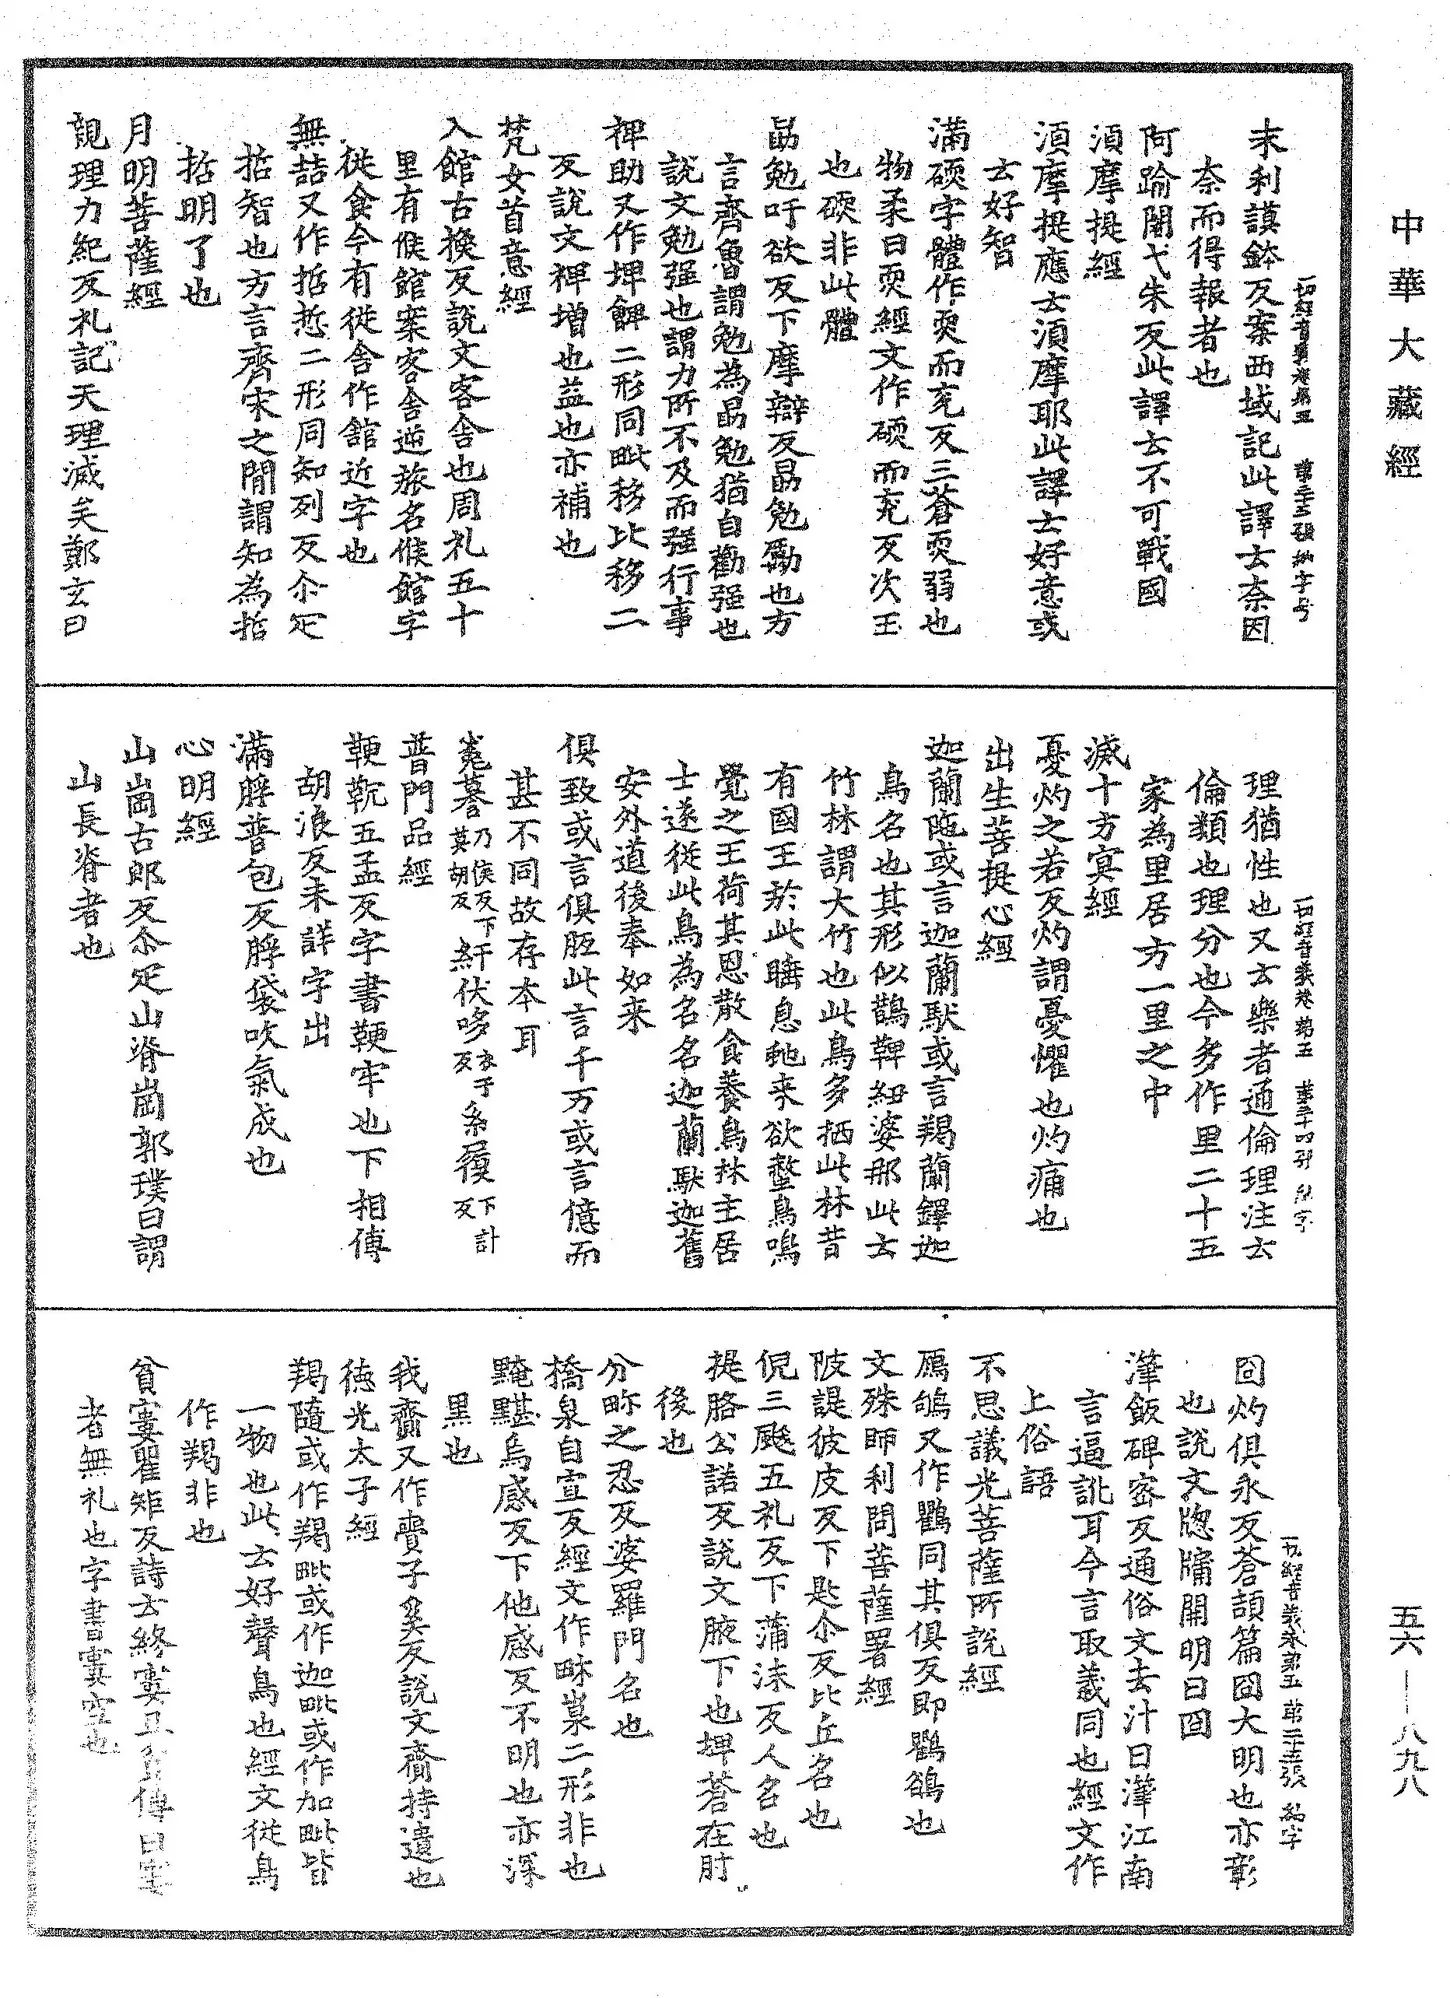 中華大藏經
末利謨鉢反案西域記此譯云柰因
柰而得報者也
阿踰闍弋朱反此譯云不可戰國
須摩提經
須摩提應云須摩耶此譯云好意或
云好智
滿碝字體作耎而兖反三蒼耎弱也
物柔曰耎經文作碝而兖反次玉
也碝非此體
勗勉吁欲反下摩辯反勗勉勵也方
言齊魯謂勉為勗勉猶自勸强也
說文勉强也謂力所不及而强行事
裨助又作埤朇二形同毗移比移二
反說文裨增也益也亦補也
梵女首意經
入館古換反說文客舍也周礼五十
里有候館案客舍逆旅名候館字
從食今有從舍作舘近字也
無喆又作哲悊二形同知列反尒疋
哲智也方言齊宋之閒謂知為哲
哲明了也
月明菩薩經
親理力紀反礼記天理滅矣鄭玄曰
理猶性也又云樂者通倫理注云
倫類也理分也今多作里二十五
家為里居方一里之中
滅十方冥經
憂灼之若反灼謂憂懼也灼痛也
出生菩提心經
迦蘭陁或言迦蘭馱或言羯蘭鐸迦
鳥名也其形似鵲鞞紐婆那此云
竹林謂大竹也此鳥多栖此林昔
有國王於此睡息虵来欲螫鳥鳴
覺之王荷其恩散食養鳥林主居
士遂從此鳥為名名迦蘭馱迦舊
安外道後奉如来
俱致或言俱胝此言千万或言億而
甚不同故存本耳
㝹謩乃侯反下莫胡反紆伏哆衣于反系履下計反
普門品經
鞕䩕五孟反字書鞕牢也下相傳
胡浪反未詳字出
滿脬普包反脬袋吹氣成也
心明經
山崗古郎反尒疋山脊崗郭璞曰謂
山長脊者也
囧灼俱永反蒼頡篇囧大明也亦彰
也說文牎牖開明曰囧
潷飯碑密反通俗文去汁曰潷江南
言逼訛耳今言取義同也經文作
上俗語
不思議光菩薩所說經
鴈鴝又作鸜同其俱反即鸜鵒也
文殊師利問菩薩署經
陂諟彼皮反下匙尒反比丘名也
倪三颰五礼反下蒲沬反人名也
提胳公諾反說文腋下也埤蒼在肘
後也
分畛之忍反婆羅門名也
橋泉自宣反經文作𤽄灥二形非也
黤黮烏感反下他感反不明也亦深
黑也
我齎又作賷子奚反說文齎持遺也
德光太子經
羯隨或作羯毗或作迦毗或作加毗皆
一物也此云好聲鳥也經文從鳥
作鶡非也
貧寠瞿矩反詩云終寠且貧傳曰寠
者無礼也字書寠空也
五六——八九八